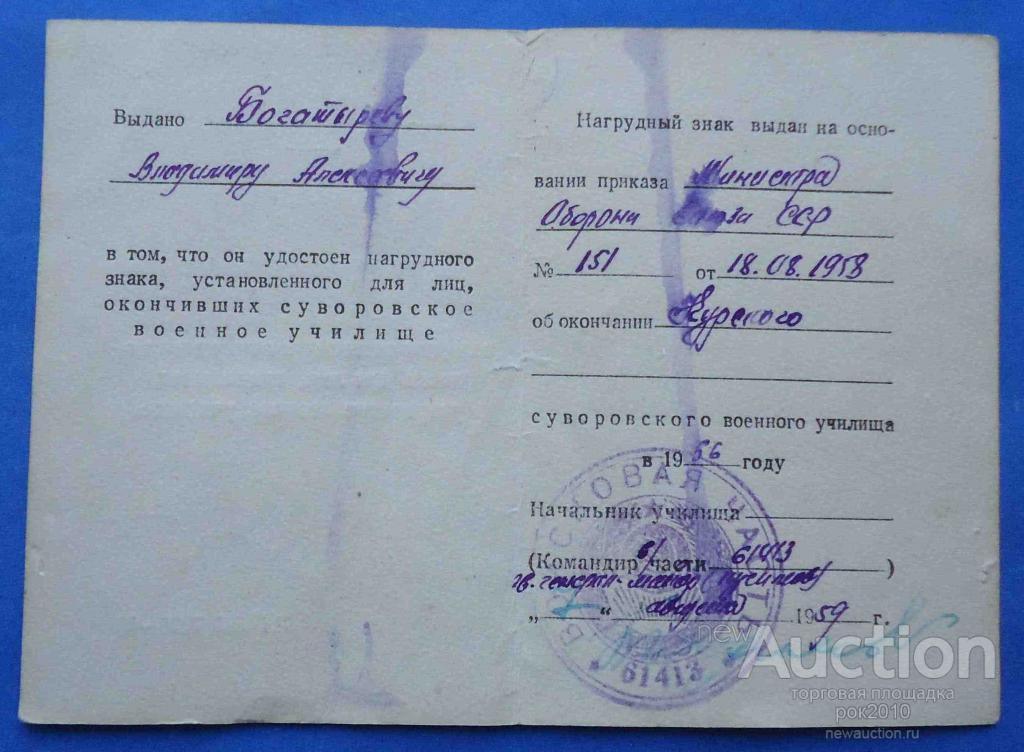 Выдано Богатыреву
Владимиру Алексеевичу
в том, что он удостоен нагрудного
знака, установленного для лиц,
окончивших суворовское
военное училище
Нагрудный знак выдан на осно-
вании приказа Министра
Обороны Союза ССР
№ 151 от 18.08.1958
об окончании Курского
суворовского военного училища
в 1956 году
Начальник училища
(Командир в/части 61413)
гв. генерал-майор
„ “ августа 1959 г.
ВОЙСКОВАЯ ЧАСТЬ
* 61413 *
new Auction
торговая площадка
рок2010
newauction.ru